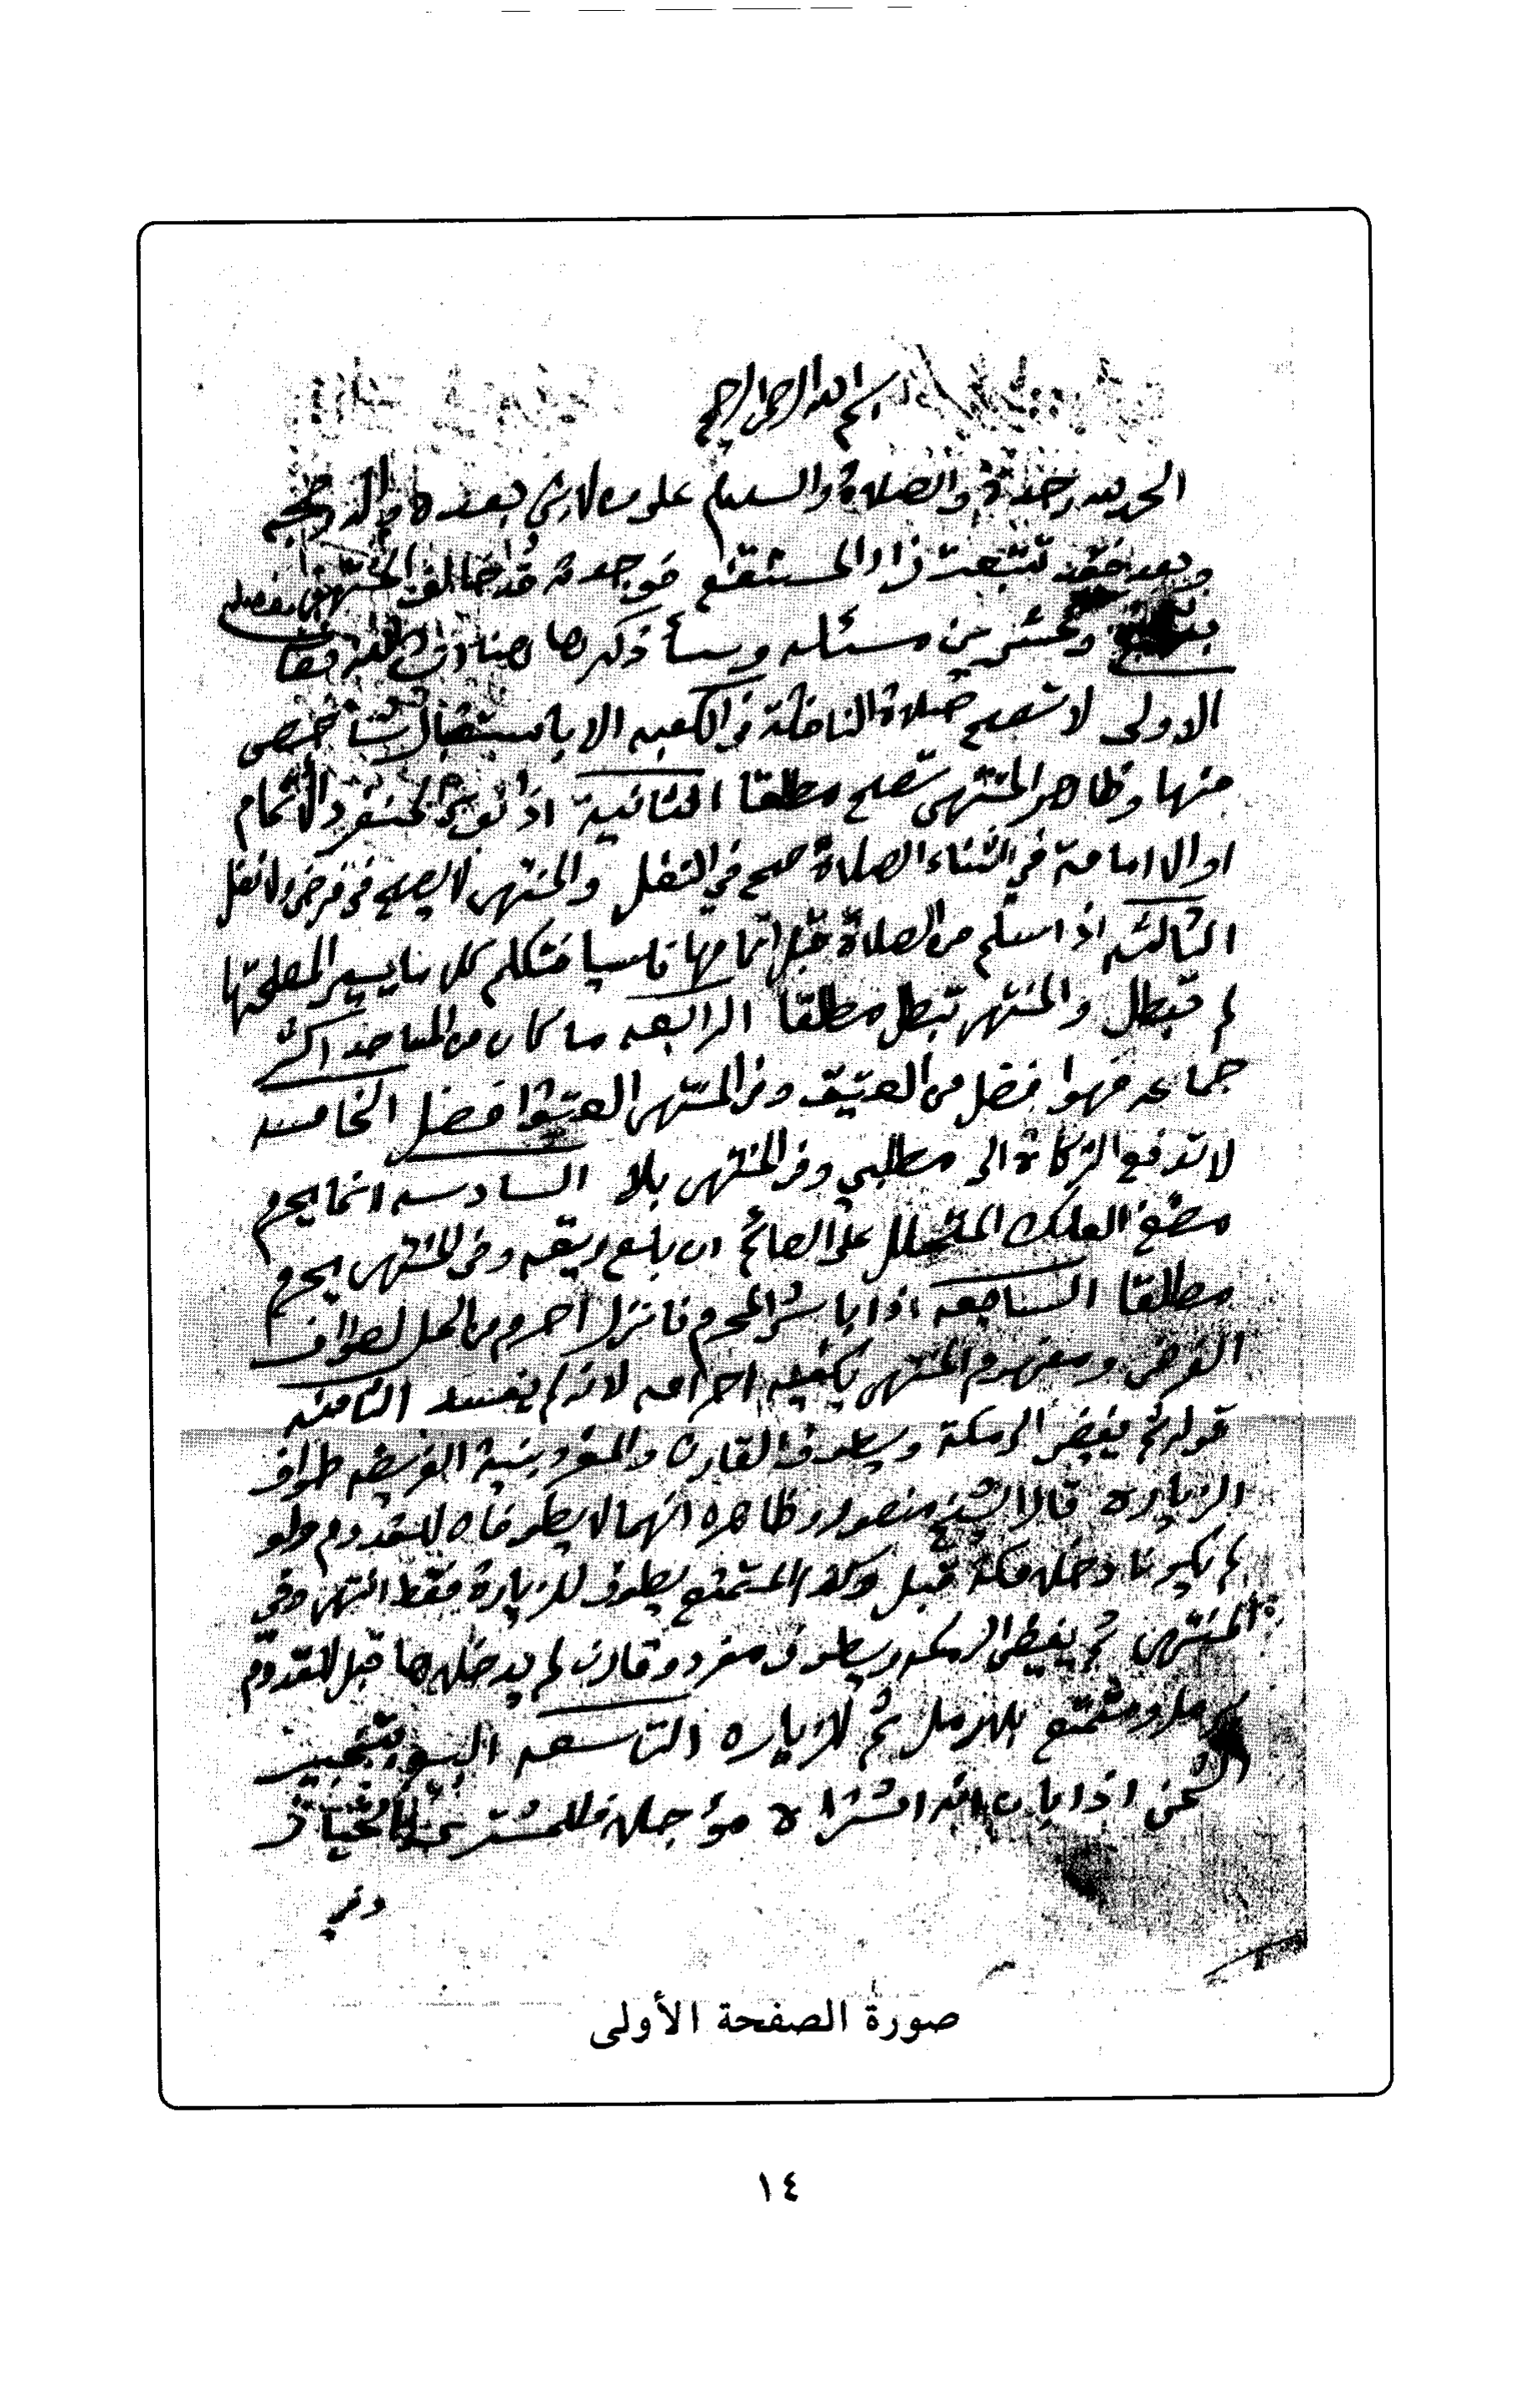 بسم الله الرحمن الرحيم
الحمد لله وحده والصلاة والسلام على من لا نبي بعده واله وصحبه
وبعد فقد تتبعت زاد المستقنع فوجدته قد خالف المنتهى
وعشرين مسئله وسأذكرها هنا
الاولى لا تصح صلاة النافلة في الكعبه الا باستقبال شاخص
منها وظاهر المنتهى تصح مطلقا الثانية اذا نوى المنفرد الأتمام
او الامامة في اثناء الصلاة صح في النفل والمنتهى لا يصح في فرض ولا نفل
الثالثه اذا سلم من الصلاة قبل اتمامها ناسيا فتكلم كلاما يسير المصلحتها
لم تبطل والمنتهى تبطل مطلقا الرابعه ما كان من المساجد اكثر
جماعه فهوا فضل من العتيق وفي المنتهى العتيق افضل الخامسه
لا تدفع الزكاة الى مطلبي وفي المنتهى بلا السادسه انما يحرم
مضغ العلك المتحلل على الصائم ان بلع ريقه وفي المنتهى يحرم
مطلقا السابعه اذا باشر المحرم فانزل احرم من الحل لطواف
الفرض ومفهوم المنتهى يكفيه احرامه لانه لم يفسد الثامنه
قوله ثم يفيض الى مكة ويطوف القارن والمفرد بنية الفريضه طواف
الزياره قال الشيخ منصور وظاهره انهما لا يطوفان للقدوم ولو
لم يكونا دخلا مكة قبل وكذا المتمتع يطوف للزيارة فقط انتهى وفي
المنتهى ثم يفيض الى مكه ويطوف مفرد وقارن لم يدخلاها قبل للقدوم
برمل ومتمتع بلا رمل ثم للزياره التاسعه البيع بتخبير
الثمن اذا بان انه اشتراه مؤجلا فللمشتري الخيار
وفي
صورة الصفحة الأولى
١٤